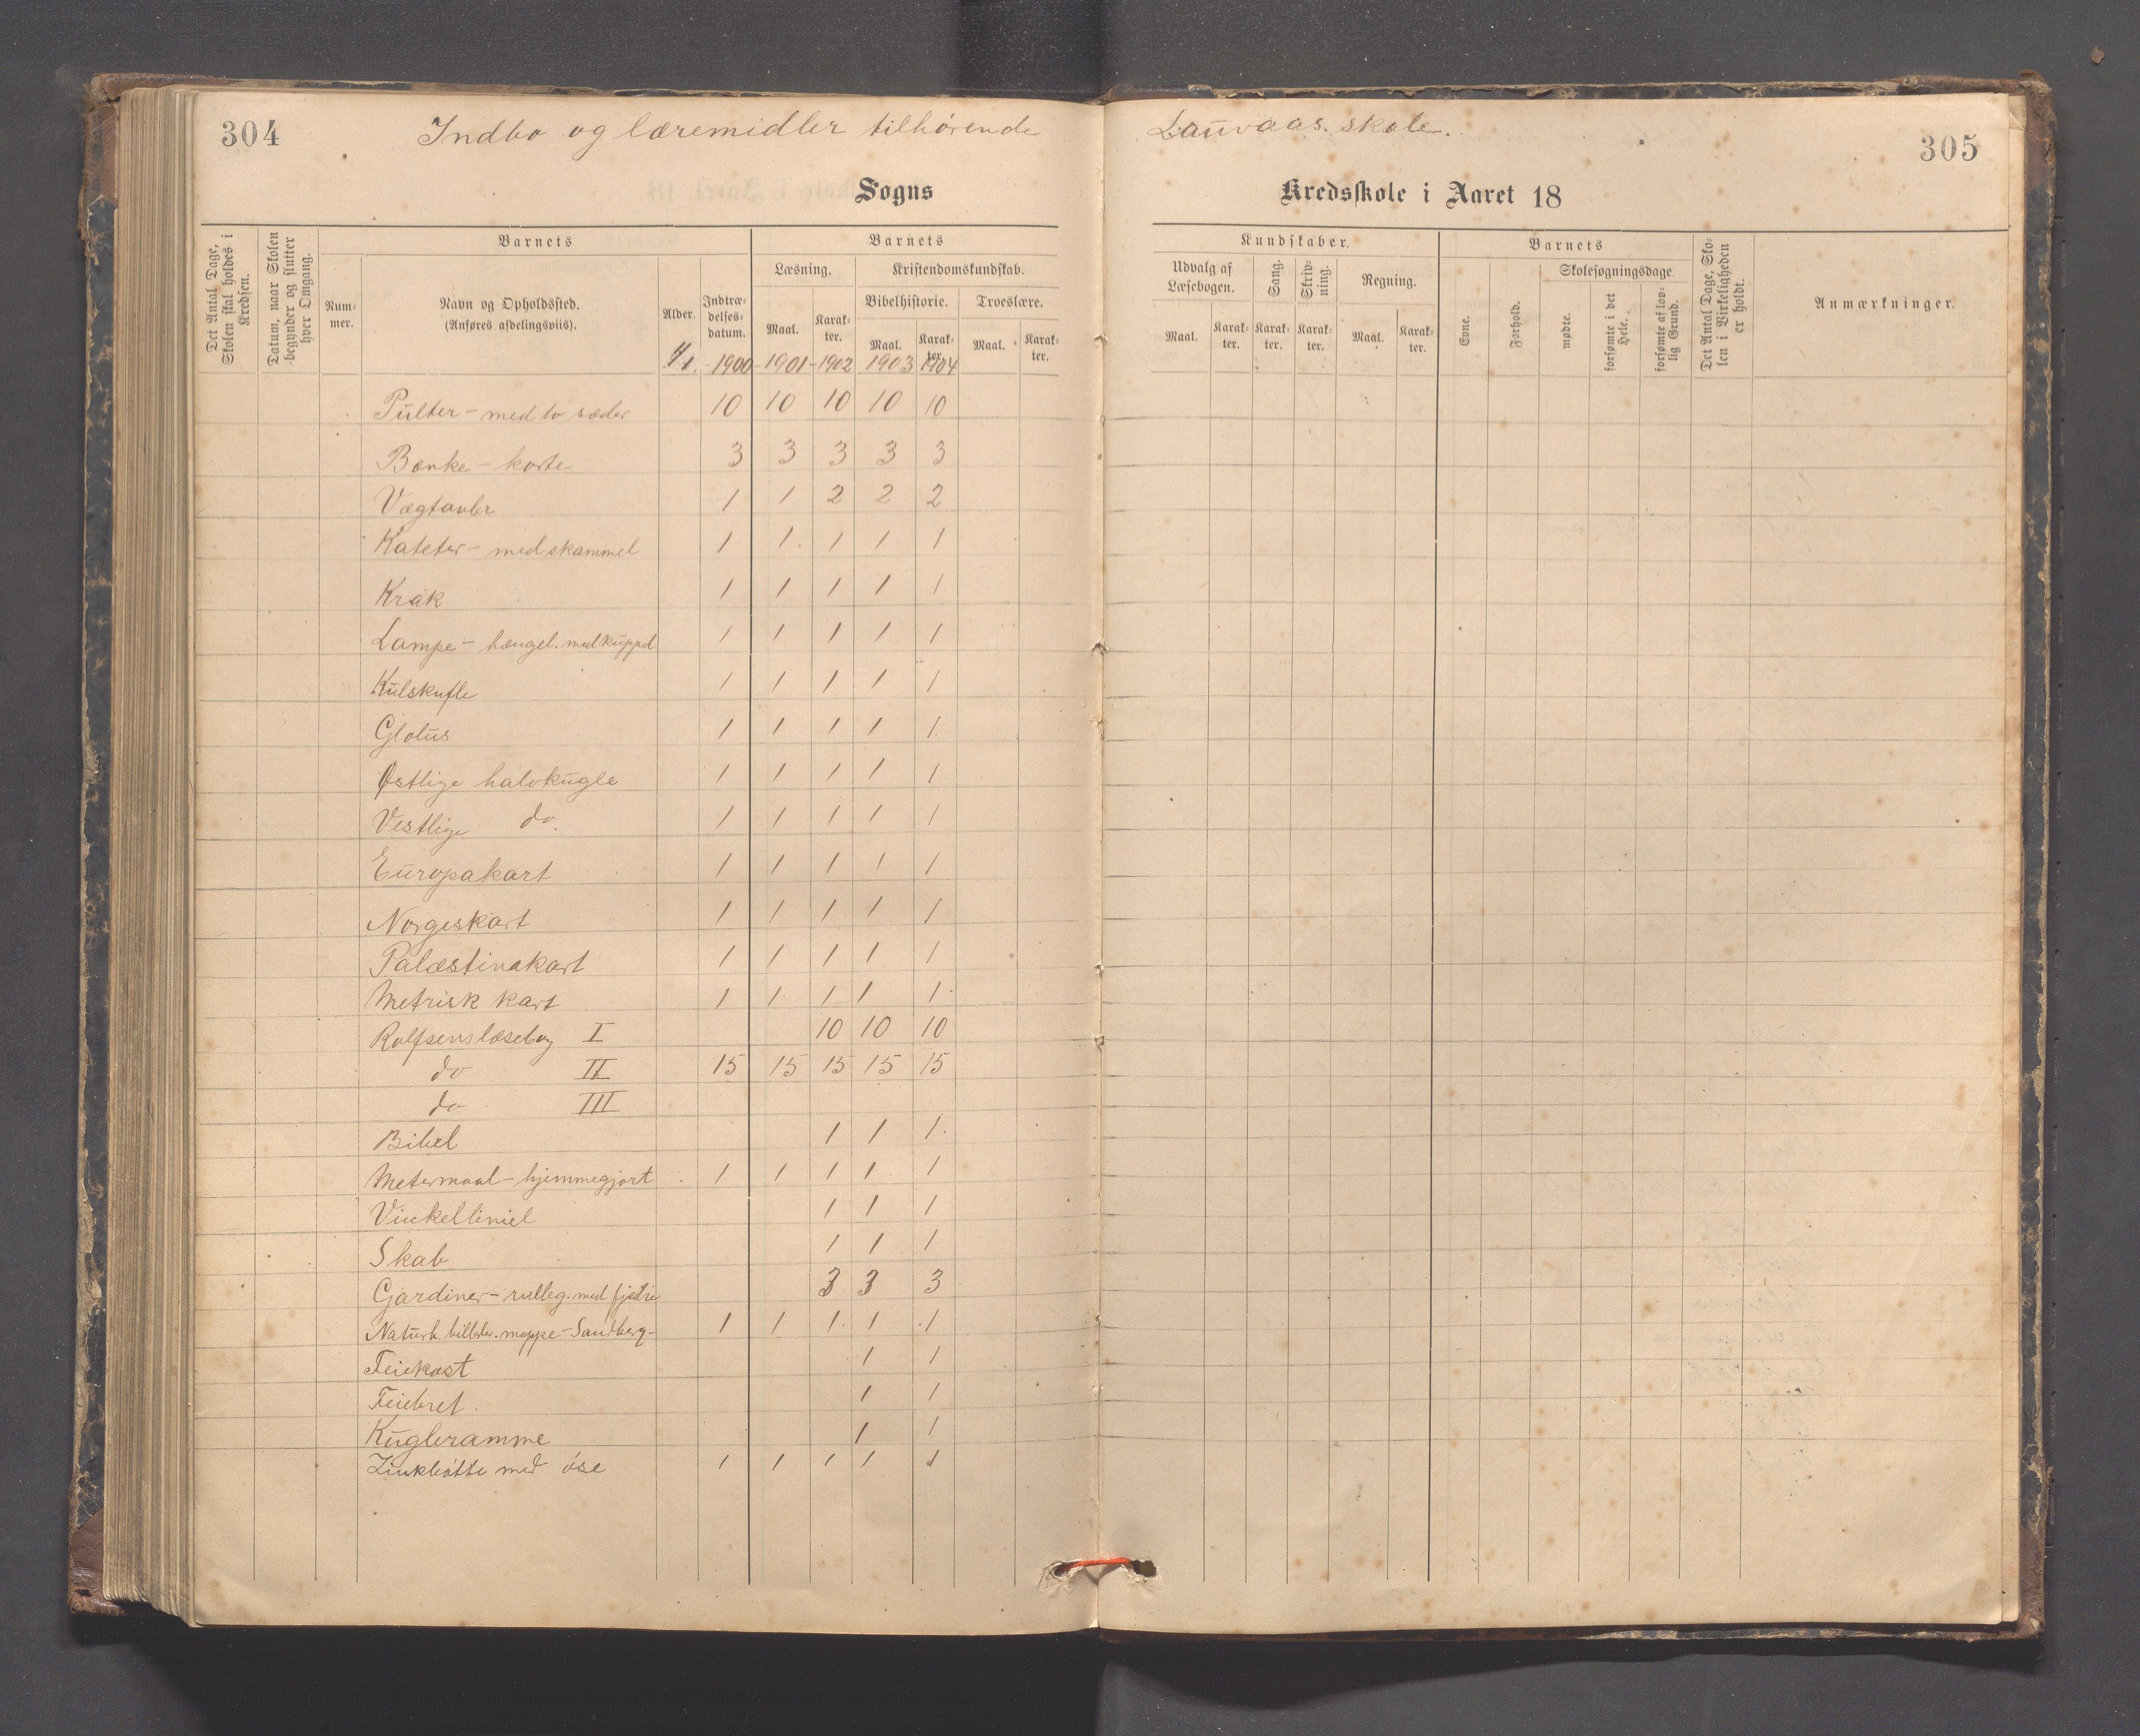 304
Indbo og læremidler tilhørende
Lauvaas. skole.
305
Sogns
Kredsskole i Aaret 18
Det Antal Dage, Skolen skal holdes i Kredsen.
Datum, naar Skolen begynder og slutter hver Omgang.
Barnets
Num-mer.
Navn og Opholdssted.
(Anføres afdelingsviis).
Alder.
Indtræ-delses-datum.
Barnets
Læsning.
Maal.
Karak-ter.
Kristendomskundskab.
Bibelhistorie.
Maal.
Karak-ter.
Troeslære.
Maal.
Karak-ter.
Kundskaber.
Udvalg af Læsebogen.
Maal.
Karak-ter.
Sang.
Karak-ter.
Skriv-ning.
Karak-ter.
Regning.
Maal.
Karak-ter.
Barnets
Evne.
Forhold.
Skolesøgningsdage.
mødte.
forsømte i det Hele.
forsømte af lov-lig Grund.
Det Antal Dage, Sko-len i Virkeligheden er holdt.
Anmærkninger.
1/1. 1900 - 1901 - 1902 1903 1904
Pulter - med to sæder 10 10 10 10 10
Bænke - korte 3 3 3 3 3
Vægtavler 1 1 2 2 2
Kateter - med skammel 1 1 1 1 1
Krak 1 1 1 1 1
Lampe - hængel. med kuppel 1 1 1 1 1
Kulskufle 1 1 1 1 1
Globus 1 1 1 1 1
Østlige halvkugle 1 1 1 1 1
Vestlige do. 1 1 1 1 1
Europakart 1 1 1 1 1
Norgeskart 1 1 1 1 1
Palæstinakart 1 1 1 1 1
Metrisk kart 1 1 1 1 1
Rolfsens læsebog I 10 10 10
do II 15 15 15 15 15
do III
Bibel 1 1 1
Metermaal - hjemmegjort 1 1 1 1 1
Vinkelliniel 1 1 1
Skab 1 1 1
Gardiner - rulleg. med fjedre 3 3 3
Naturh. billeder. mappe - Sandberg - 1 1 1 1 1
Feiekost 1 1
Feiebret 1 1
Kugleramme 1 1
Zinkbøtte med øse 1 1 1 1 1